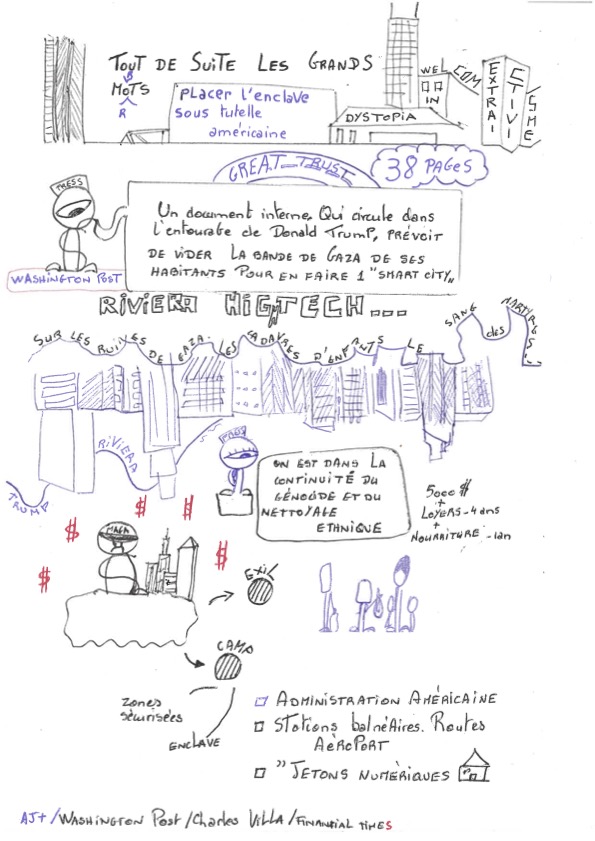 TOUT DE SUITE LES GRANDS
MOTS
B
R
placer l'enclave
sous tutelle
américaine
DYSTOPIA
WELCOM
IN
EXTRAI
CTIVI
SME
GREAT TRUST
38 PAGES
PRESS
WASHINGTON POST
Un document interne, Qui circule dans
l'entourage de Donald Trump, PRÉVOIT
DE VIDER LA BANDE DE GAZA DE SES
HABITANTS POUR EN FAIRE 1 "SMART CITY"
RIVIERA HIGHTECH...
SUR LES RUINES DE GAZA. LES CADAVRES D'ENFANTS LE SANG des MARTYRS
RIVIERA
TRUMP
ON EST DANS LA
CONTINUITÉ DU
GÉNOCIDE ET DU
NETTOYAGE
ETHNIQUE
5000 $
+
LOYERS - 4 ans
+
NOURRITURE - 1an
$ $ $ $ $
MAGA
EXIL
CAMP
zones
sécurisées
ENCLAVE
ADMINISTRATION AMÉRICAINE
Stations balnéaires. Routes
AÉROPORT
" JETONS NUMÉRIQUES
AJ+ / WASHINGTON Post / Charles VILLA / FINANCIAL TIMES